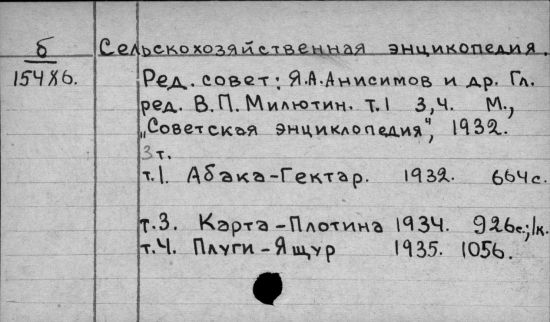 б Сельскохозяйственная энцикопедия.
15486. Ред. совет: Я.А.Анисимов и др. Гл.
ред. В.П.Милютин. т.1 3,4. М.,
„Советская энциклопедия", 1932.
3 т.
т.1. Абака-Гектар. 1932. 664 с.
т.3. Карта-Плотина 1934. 926с.;1к.
т.4. Плуги-Ящур 1935. 1056.